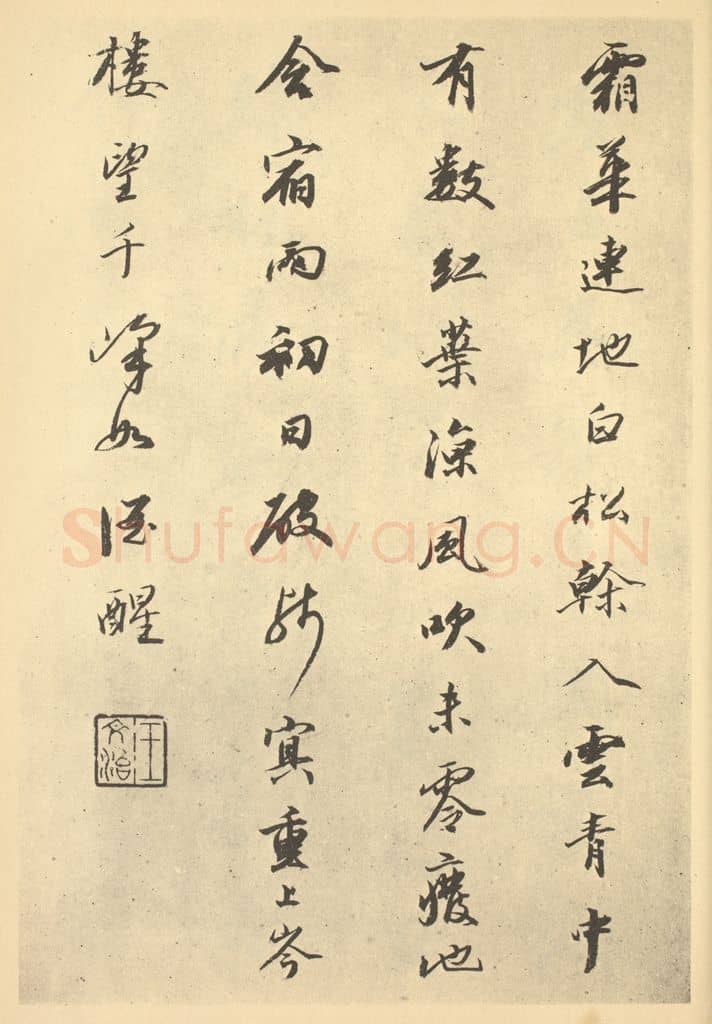 霜華連地白松幹入雲青中
有數紅葉涼風吹未零癈地
含宿雨初日破冥重上岑
樓望千峰如酒醒
王文治
Shufawang.CN